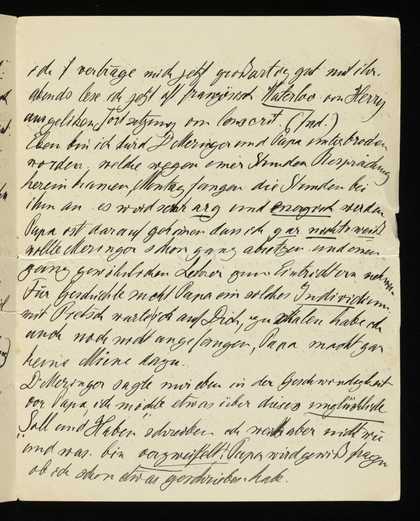 ich vertrage mich jetzt großartig gut mit ihr.
abends lese ich jetzt oft französisch Waterloo von Henry
ausgeliehen, Fortsetzung von Conscrit (Ind.)
Eben bin ich durch D. Meringer und Papa unterbrochen
worden, welche wegen einer Stunden Besprechung
hereinkamen, Montag fangen die Stunden bei
ihm an. es wird sehr arg und energisch werden
Papa ist darauf gekommen dass ich gar nichts weiß
wollte Meringer schon ganz absetzen und einen
ganz gewöhnlichen Lehrer zum Eintrichtern nehmen
Für Geschichte sucht Papa ein solches Individuum
mit Pietsch warte ich auf Dich, zu
auch noch nicht angefangen, Papa macht gar
keine Miene dazu.
D. Meringer sagte mir eben in der Geschwindigkeit
vor Papa, ich möchte etwas über dieses unglückliche
Soll und Haben schreiben ich weiß aber nicht wie
und was. bin verzweifelt! Papa wird gewiß fragen
ob ich schon etwas geschrieben habe.